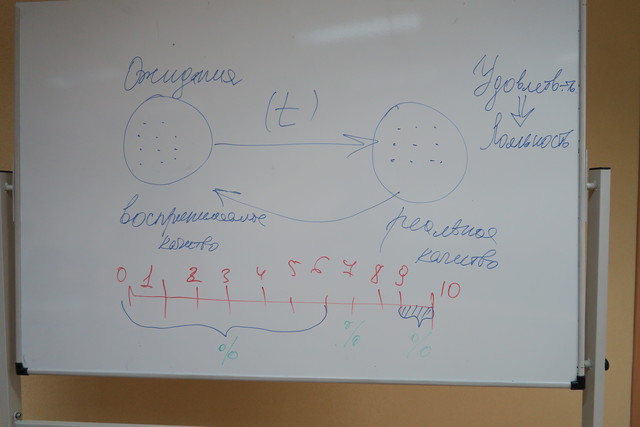 Ожидания
(t)
Удовлетв-ть
Лояльность
воспринимаемое
качество
реальная
качество
0 1 2 3 4 5 6 7 8 9 10
% % %